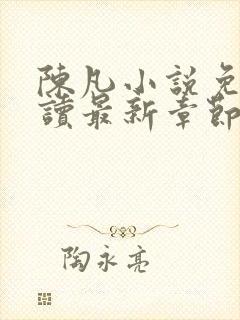 陳凡小說免
讀最新章節
陶永亮